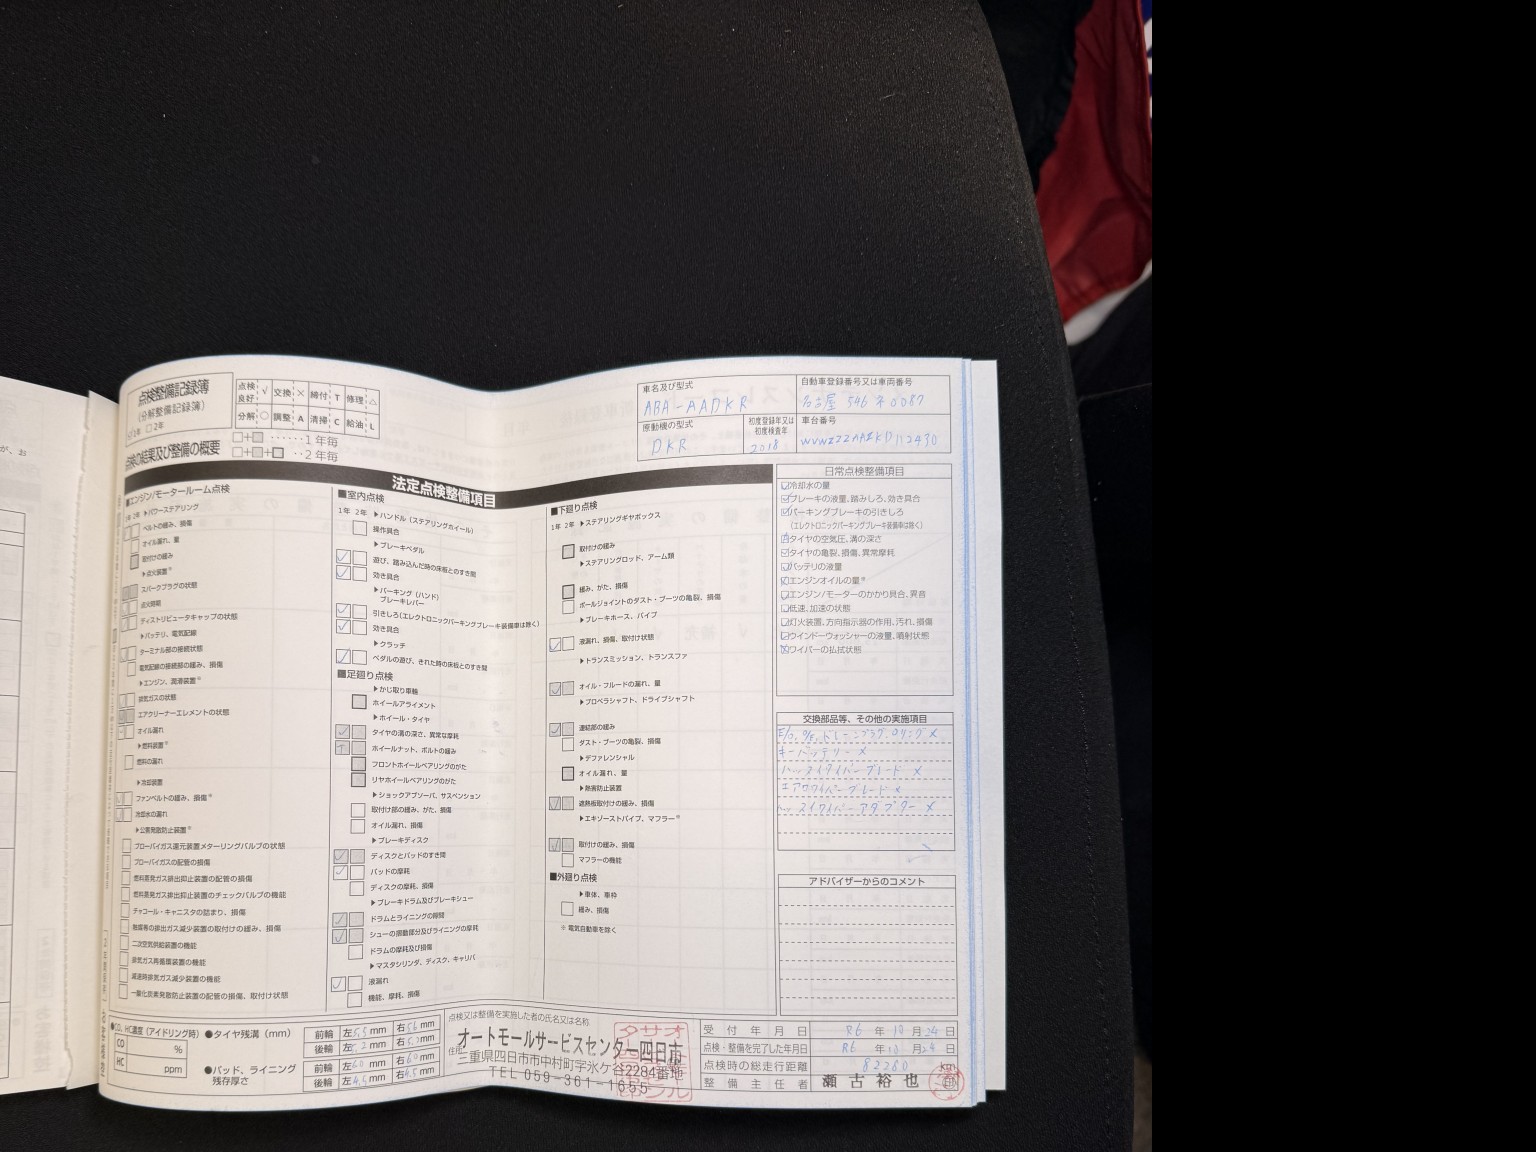 点検整備記録簿
(分解整備記録簿)
☑1年 □2年
点検良好 √ 交換 × 締付 T 修理 △
分解 ○ 調整 A 清掃 C 給油 L
点検の結果及び整備の概要
□+□ ‥‥‥1年毎
□+□+□ ‥2年毎
車名及び型式
ABA-AADKR
自動車登録番号又は車両番号
名古屋 546 0087
原動機の型式
DKR
初度登録年又は初度検査年
2018
車台番号
法定点検整備項目
■エンジン/モータールーム点検
1年 2年 ▶パワーステアリング
ベルトの緩み、損傷
オイル漏れ、量
取付けの緩み
▶点火装置※
スパークプラグの状態
点火時期
ディストリビュータキャップの状態
▶バッテリ、電気配線
ターミナル部の接続状態
電気配線の接続部の緩み、損傷
▶エンジン、潤滑装置※
排気ガスの状態
エアクリーナーエレメントの状態
オイル漏れ
▶燃料装置※
燃料の漏れ
▶冷却装置
ファンベルトの緩み、損傷※
冷却水の漏れ
▶公害発散防止装置※
ブローバイガス還元装置メターリングバルブの状態
ブローバイガスの配管の損傷
燃料蒸発ガス排出抑止装置の配管の損傷
燃料蒸発ガス排出抑止装置のチェックバルブの機能
チャコール・キャニスタの詰まり、損傷
触媒等の排出ガス減少装置の取付けの緩み、損傷
二次空気供給装置の機能
排気ガス再循環装置の機能
減速時排気ガス減少装置の機能
一酸化炭素発散防止装置の配管の損傷、取付け状態
■室内点検
1年 2年 ▶ハンドル (ステアリングホイール)
操作具合
▶ブレーキペダル
遊び、踏み込んだ時の床板とのすき間
効き具合
▶パーキング (ハンド) ブレーキレバー
引きしろ(エレクトロニックパーキングブレーキ装備車は除く)
効き具合
▶クラッチ
ペダルの遊び、きれた時の床板とのすき間
■足廻り点検
▶かじ取り車輪
ホイールアライメント
▶ホイール・タイヤ
タイヤの溝の深さ、異常な摩耗
ホイールナット、ボルトの緩み
フロントホイールベアリングのがた
リヤホイールベアリングのがた
▶ショックアブソーバ、サスペンション
取付け部の緩み、がた、損傷
オイル漏れ、損傷
▶ブレーキディスク
ディスクとパッドのすき間
パッドの摩耗
ディスクの摩耗、損傷
▶ブレーキドラム及びブレーキシュー
ドラムとライニングの隙間
シューの摺動部分及びライニングの摩耗
ドラムの摩耗及び損傷
▶マスタシリンダ、ディスク、キャリパ
液漏れ
機能、摩耗、損傷
■下廻り点検
1年 2年 ▶ステアリングギヤボックス
取付けの緩み
▶ステアリングロッド、アーム類
緩み、がた、損傷
ボールジョイントのダスト・ブーツの亀裂、損傷
▶ブレーキホース、パイプ
液漏れ、損傷、取付け状態
▶トランスミッション、トランスファ
オイル・フルードの漏れ、量
▶プロペラシャフト、ドライブシャフト
連結部の緩み
ダスト・ブーツの亀裂、損傷
▶デファレンシャル
オイル漏れ、量
▶熱害防止装置
遮熱板取付けの緩み、損傷
▶エキゾーストパイプ、マフラー※
取付けの緩み、損傷
マフラーの機能
■外廻り点検
▶車体、車枠
緩み、損傷
※ 電気自動車を除く
日常点検整備項目
冷却水の量
ブレーキの液量、踏みしろ、効き具合
パーキングブレーキの引きしろ
(エレクトロニックパーキングブレーキ装備車は除く)
タイヤの空気圧、溝の深さ
タイヤの亀裂、損傷、異常摩耗
バッテリの液量
エンジンオイルの量※
エンジン/モーターのかかり具合、異音
低速、加速の状態
灯火装置、方向指示器の作用、汚れ、損傷
ウインドーウォッシャーの液量、噴射状態
ワイパーの払拭状態
交換部品等、その他の実施項目
E/O, O/E, ドレーンプラグ, Oリング ×
キーバッテリー ×
エアロワイパーブレード ×
アドバイザーからのコメント
●CO、HC濃度 (アイドリング時)
CO %
HC ppm
●タイヤ残溝 (mm)
前輪 左5.5mm 右5.6mm
後輪 左5.2mm 右5.2mm
●パッド、ライニング残存厚さ
前輪 左6.0mm 右6.0mm
後輪 左4.5mm 右4.5mm
点検又は整備を実施した者の氏名又は名称
オートモールサービスセンター四日市
住所
三重県四日市市中村町字氷ケ谷2284番地
TEL 059-361-1655
受付年月日 R6年10月24日
点検・整備を完了した年月日 R6年10月24日
点検時の総走行距離 82280 km
整備主任者 瀬古裕也 ㊞